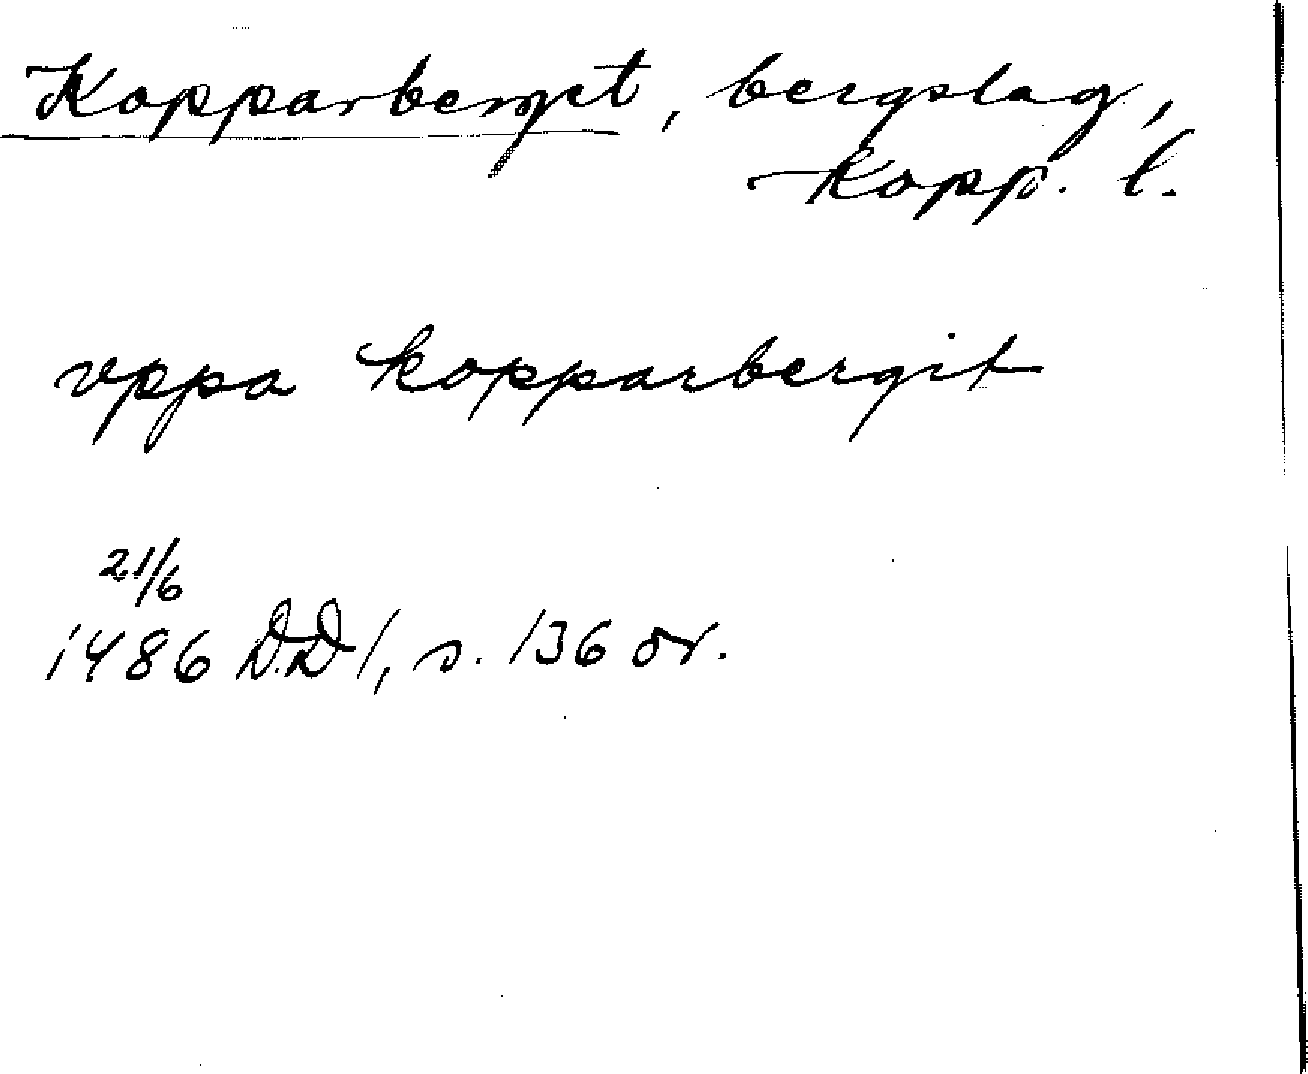 Kopparberget, bergslag,
Kopp. l.
vppa kopparbergit
21/6
1486 D.D 1, s. 136 or.